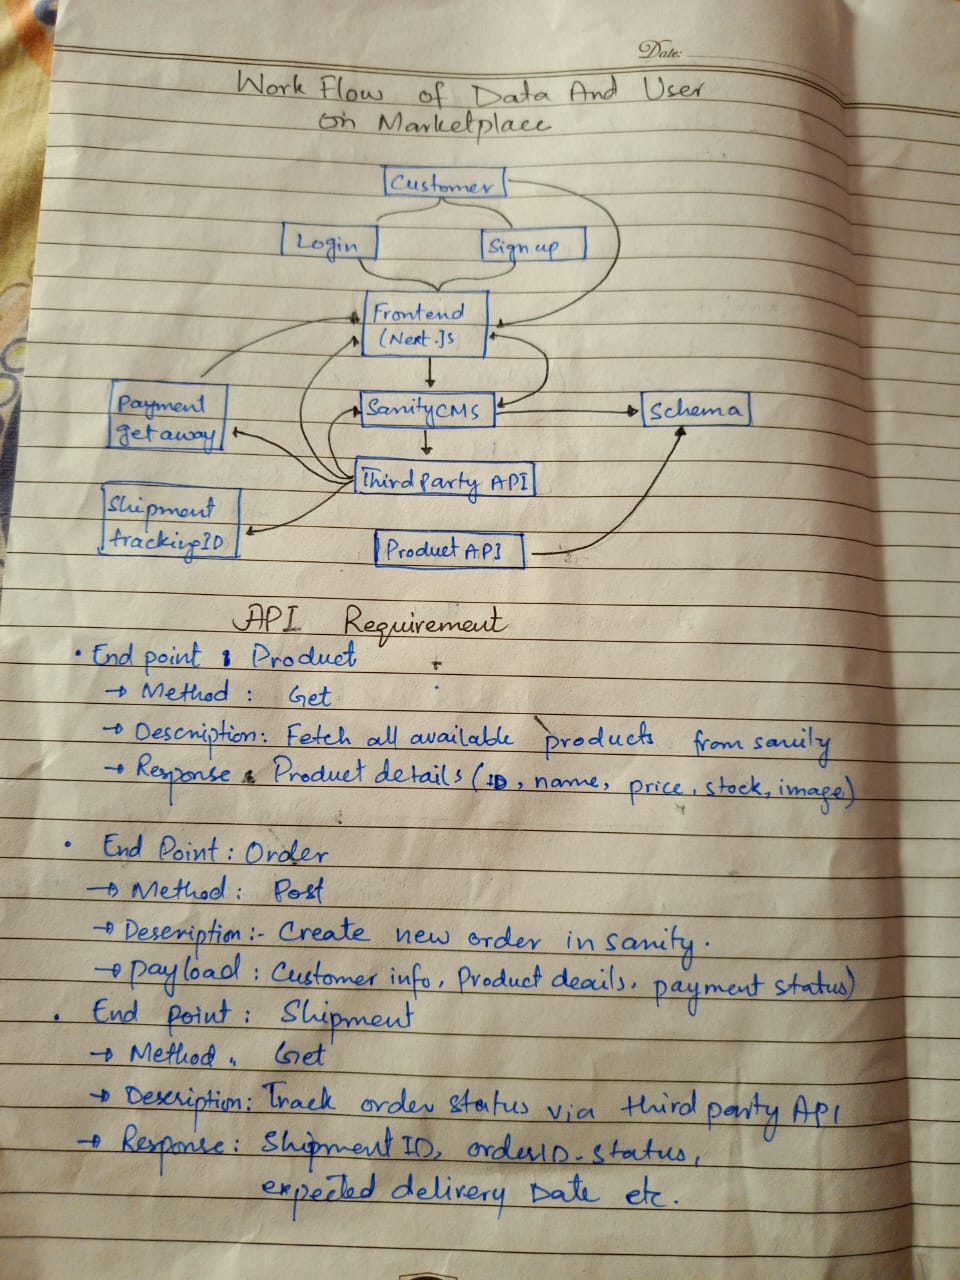 Date:
Work Flow of Data And User
on Marketplace
Customer
Login
Sign up
Frontend
(Next.Js
Payment
getaway
SanityCMS
Schema
Third Party API
Shipment
trackingID
Product API
API Requirement
• End point : Product
→ Method : Get
→ Description: Fetch all available products from sanity
→ Response : Product details (ID, name, price, stock, image)
• End Point : Order
→ Method : Post
→ Description :- Create new order in sanity.
→ payload : Customer info, Product deails, payment status)
• End point : Shipment
→ Method : Get
→ Description: Track order status via third party API
→ Response : Shipment ID, orderID, status,
expected delivery Date etc.